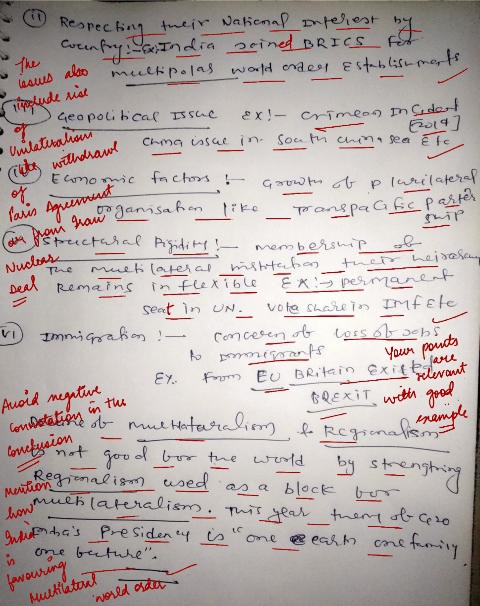 (ii) Respecting their National Interest by
country:- Ex:- India joined BRICS for
multipolar world order establishments
The issues also include rise of Unilateralism like withdrawl of Paris Agreement from Iran Nuclear Deal
Geopolitical Issue Ex:- Crimean Incident [2014]
China issue in South china sea Etc
Economic factors :- Growth of plurilateral
organisation like Transpacific partership
Structural Rigidity :- membership of
The multilateral institution their
Remains in flexible Ex:-> permanent
seat in UN. Vote share in IMF Etc
VI Immigration :- concern of loss of Jobs
to Immigrants
EX. From EU Britain Exited
BREXIT
Your points are relevant with good example
Avoid negative connotation in the conclusion
of multilateralism & Regionalism
is not good for the world by strengthing
Regionalism used as a block for
multilateralism. This year them of G20
India's Presidency is "one earth one family
one future".
mention how India is favouring Multilateral world order